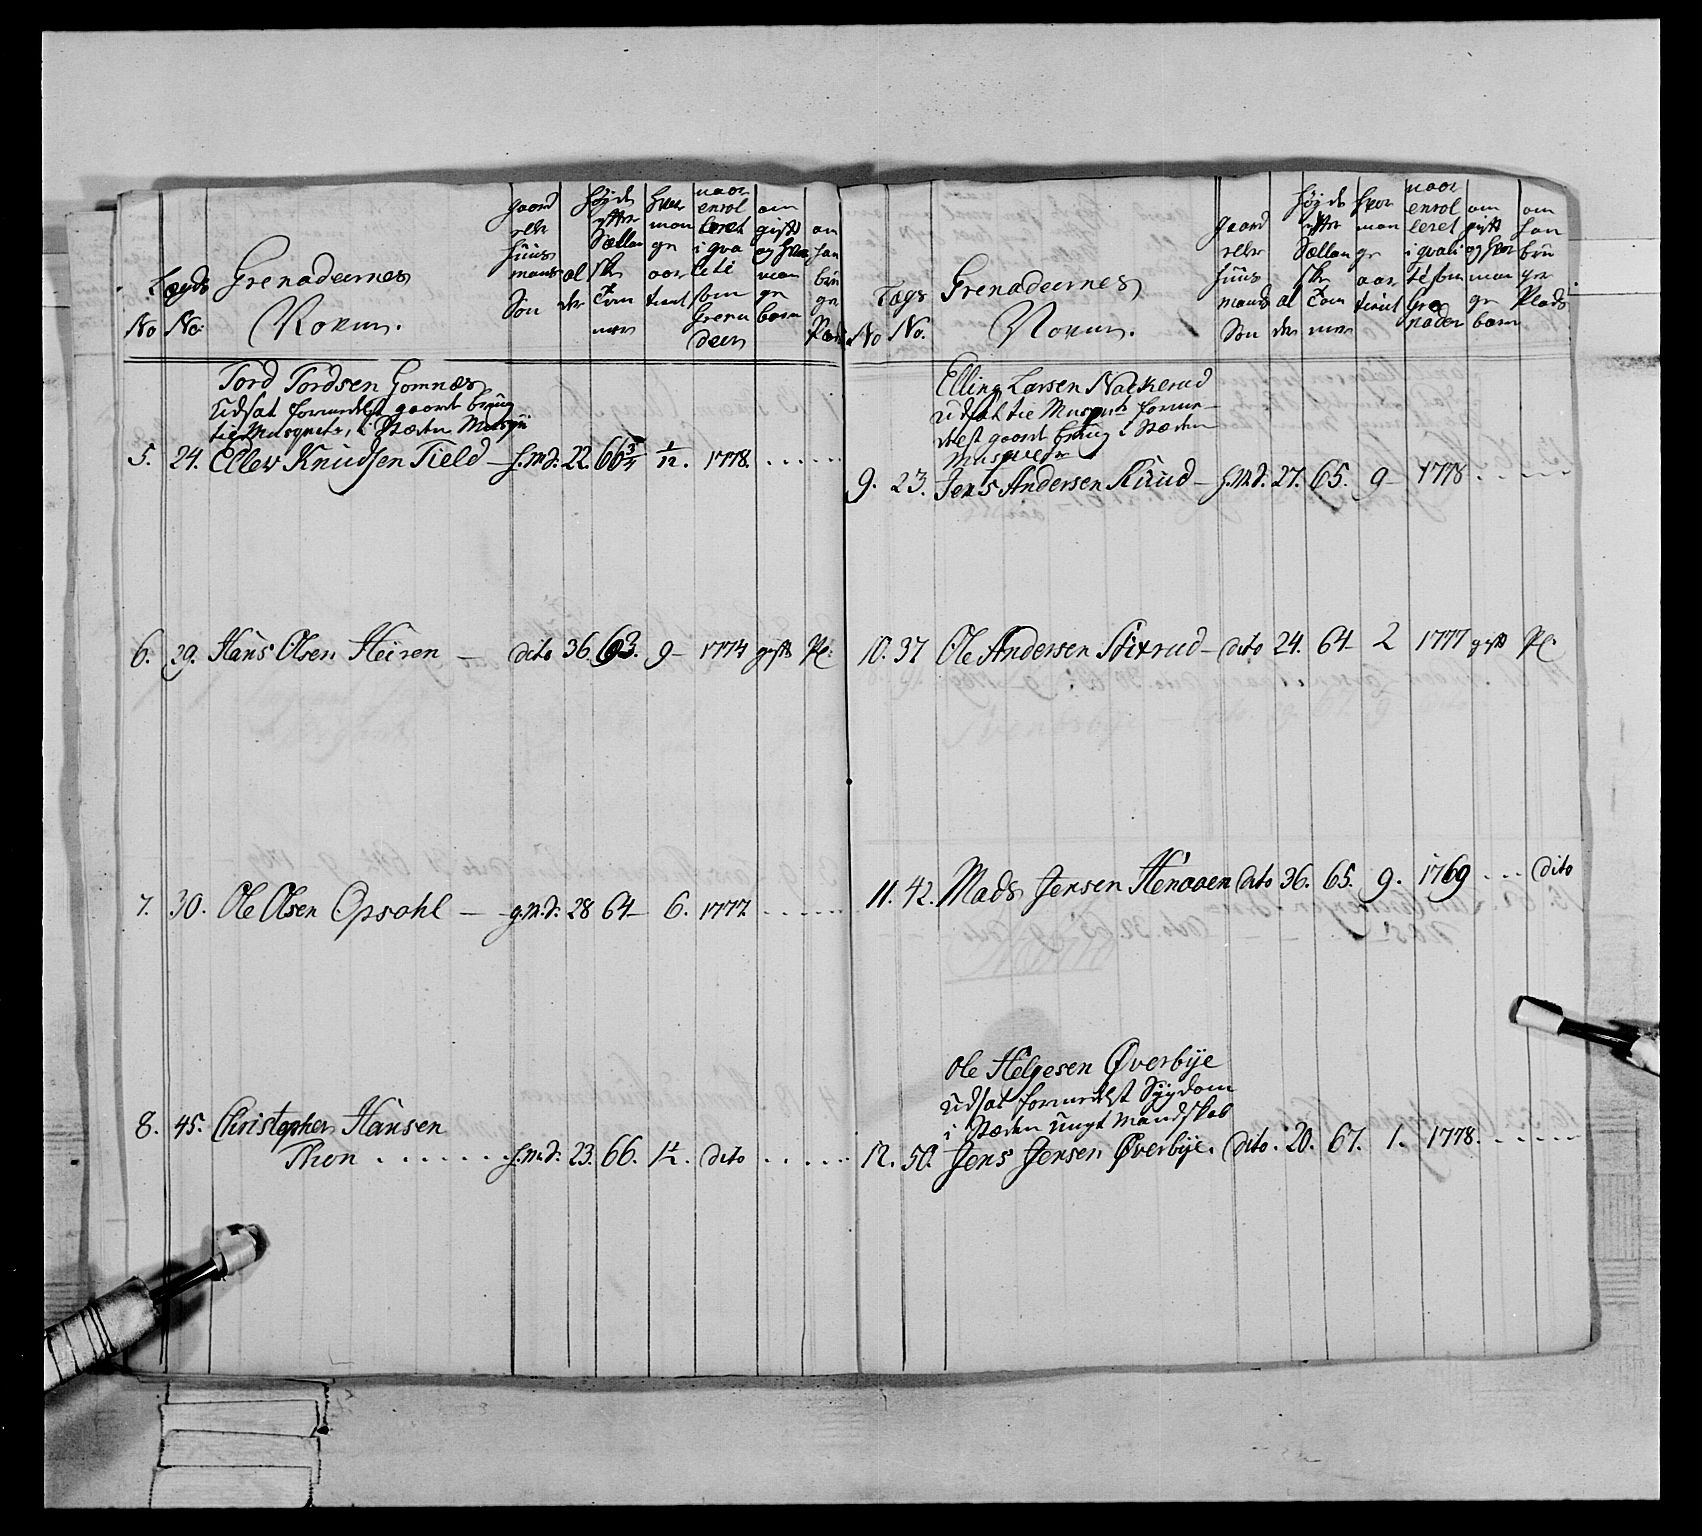 No
Lægds No:
Grenadeernes
Novne.
gaard
eller
Huus
mands
Søn
al
der
høyde
efter
Sællan
ske
Tom
mer
hvor
man
ge
aar
tient
naar
enrol
leret
i qva
lete
som
Grena
deer
om
gift
og hvor
man
ge
børn
om
han
brü
ger
Plads
Tord Tordsen Gomnæs
Udsat formedelst gaard brüug
til Musqueter, i Stæden Musqü
5. 24. Ellev Knudsen Field – h.m.S: 22. 66 3/4 1/12. 1778. . . . . .
6. 29. Hans Olsen Heiren – dito 36. 63. 9 – 1774 gift Pl:
7. 30. Ole Olsen Opsahl – g.m.S: 28 64 – 6. 1777. . . . . .
8. 45. Christopher Hansen
Thon . . . . . . h.m.S: 23. 66. 1 1/2. dito . . . . .
No
Lægs No.
Grenadeernes
Novne.
gaard
eller
Huus
mands
Søn
al
der
høyde
efter
Sællan
ske
Tom
mer
hvor
man
ge
aar
tient
naar
enrol
leret
i quali
te som
Gre
nader
om
gift
og hvor
man
ge
børn
om
han
brü
ger
Plads
Elling Larsen Nackerud
udsat til Musquets forme–
delst gaard brüug i Stæden
Musqueter
9. 23. Jens Andersen Ruud – h.m.S. 27. 65. 9 – 1778 . . . . .
10. 37 Ole Andersen Stixrud – dito 24. 64 – 2 1777 gift Pl:
11. 42. Mads Jensen Henaaen dito 36. 65. 9. 1769 . . . dito
Ole Helgesen Øverbÿe
udsat formedelst Sÿgdom
i Stæden Ungt Mandskab
12. 50. Jens Jensen Øverbÿe. dito. 20. 67. 1. 1778. . . . . .